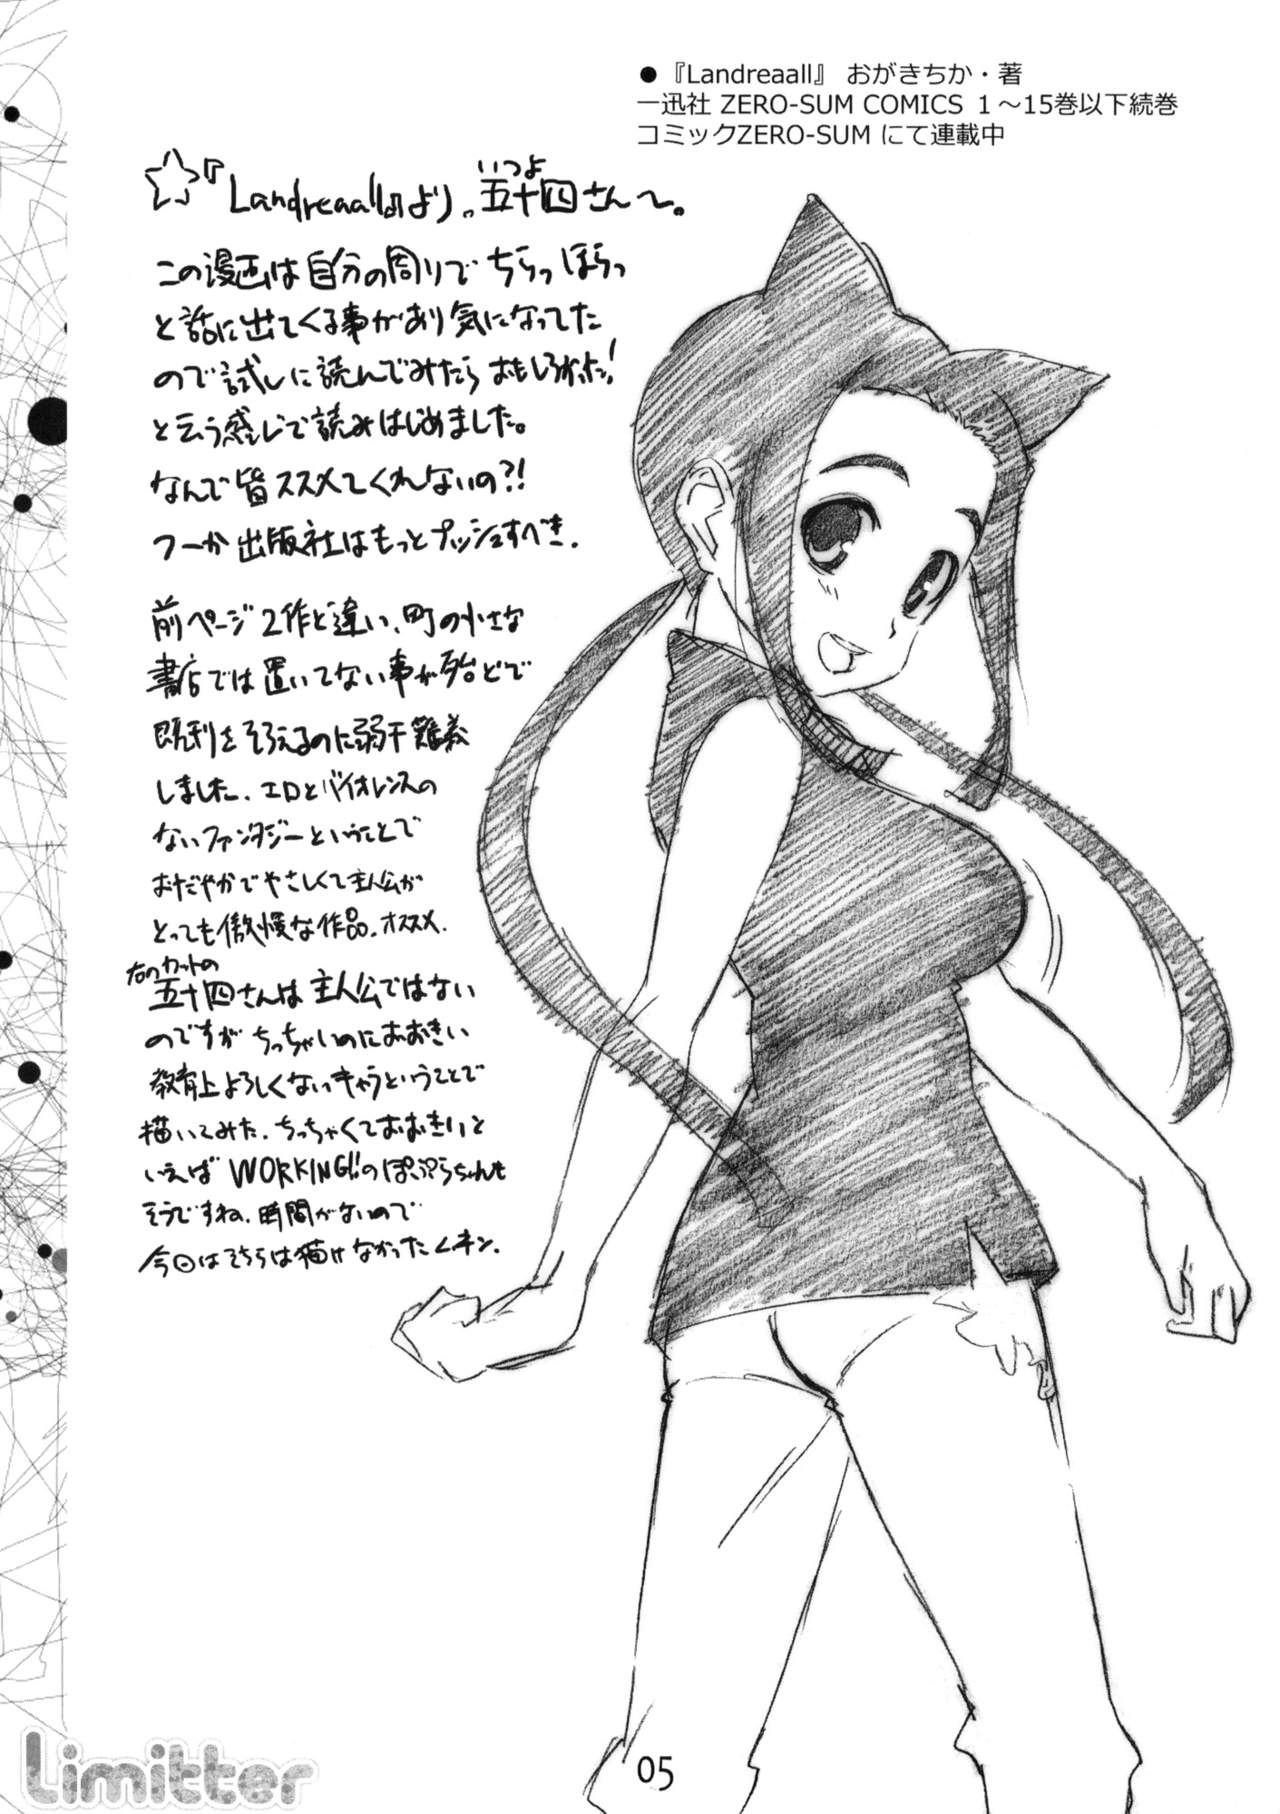 ●『Landreaall』 おがきちか・著
一迅社 ZERO-SUM COMICS 1～15巻以下続巻
コミックZERO-SUM にて連載中
☆『Landreaall』より。五十四さん～。
いつよ
この漫画は自分の周りでちらっほらっ
と話に出てくる事があり気になってた
ので試しに読んでみたらおもしろかった!
と云う感じで読みはじめました。
なんで皆ススメてくれないの?!
つーか出版社はもっとプッシュすべき.
前ページ2作と違い、町の小さな
書店では置いてない事が殆どで
既刊をそろえるのに弱干難義
しました. エロとバイオレンスの
ないファンタジーということで
おだやかでやさしくて主人公が
とっても傲慢な作品. オススメ.
右のカットの
五十四さんは主人公ではない
のですがちっちゃいのにおおきい
教育上よろしくないキャラということで
描いてみた. ちっちゃくておおきいと
いえば WORKING!!のぽぷらちゃんも
そうですね. 時間がないので
今回はそちらは描けなかったムネン.
Limitter
05